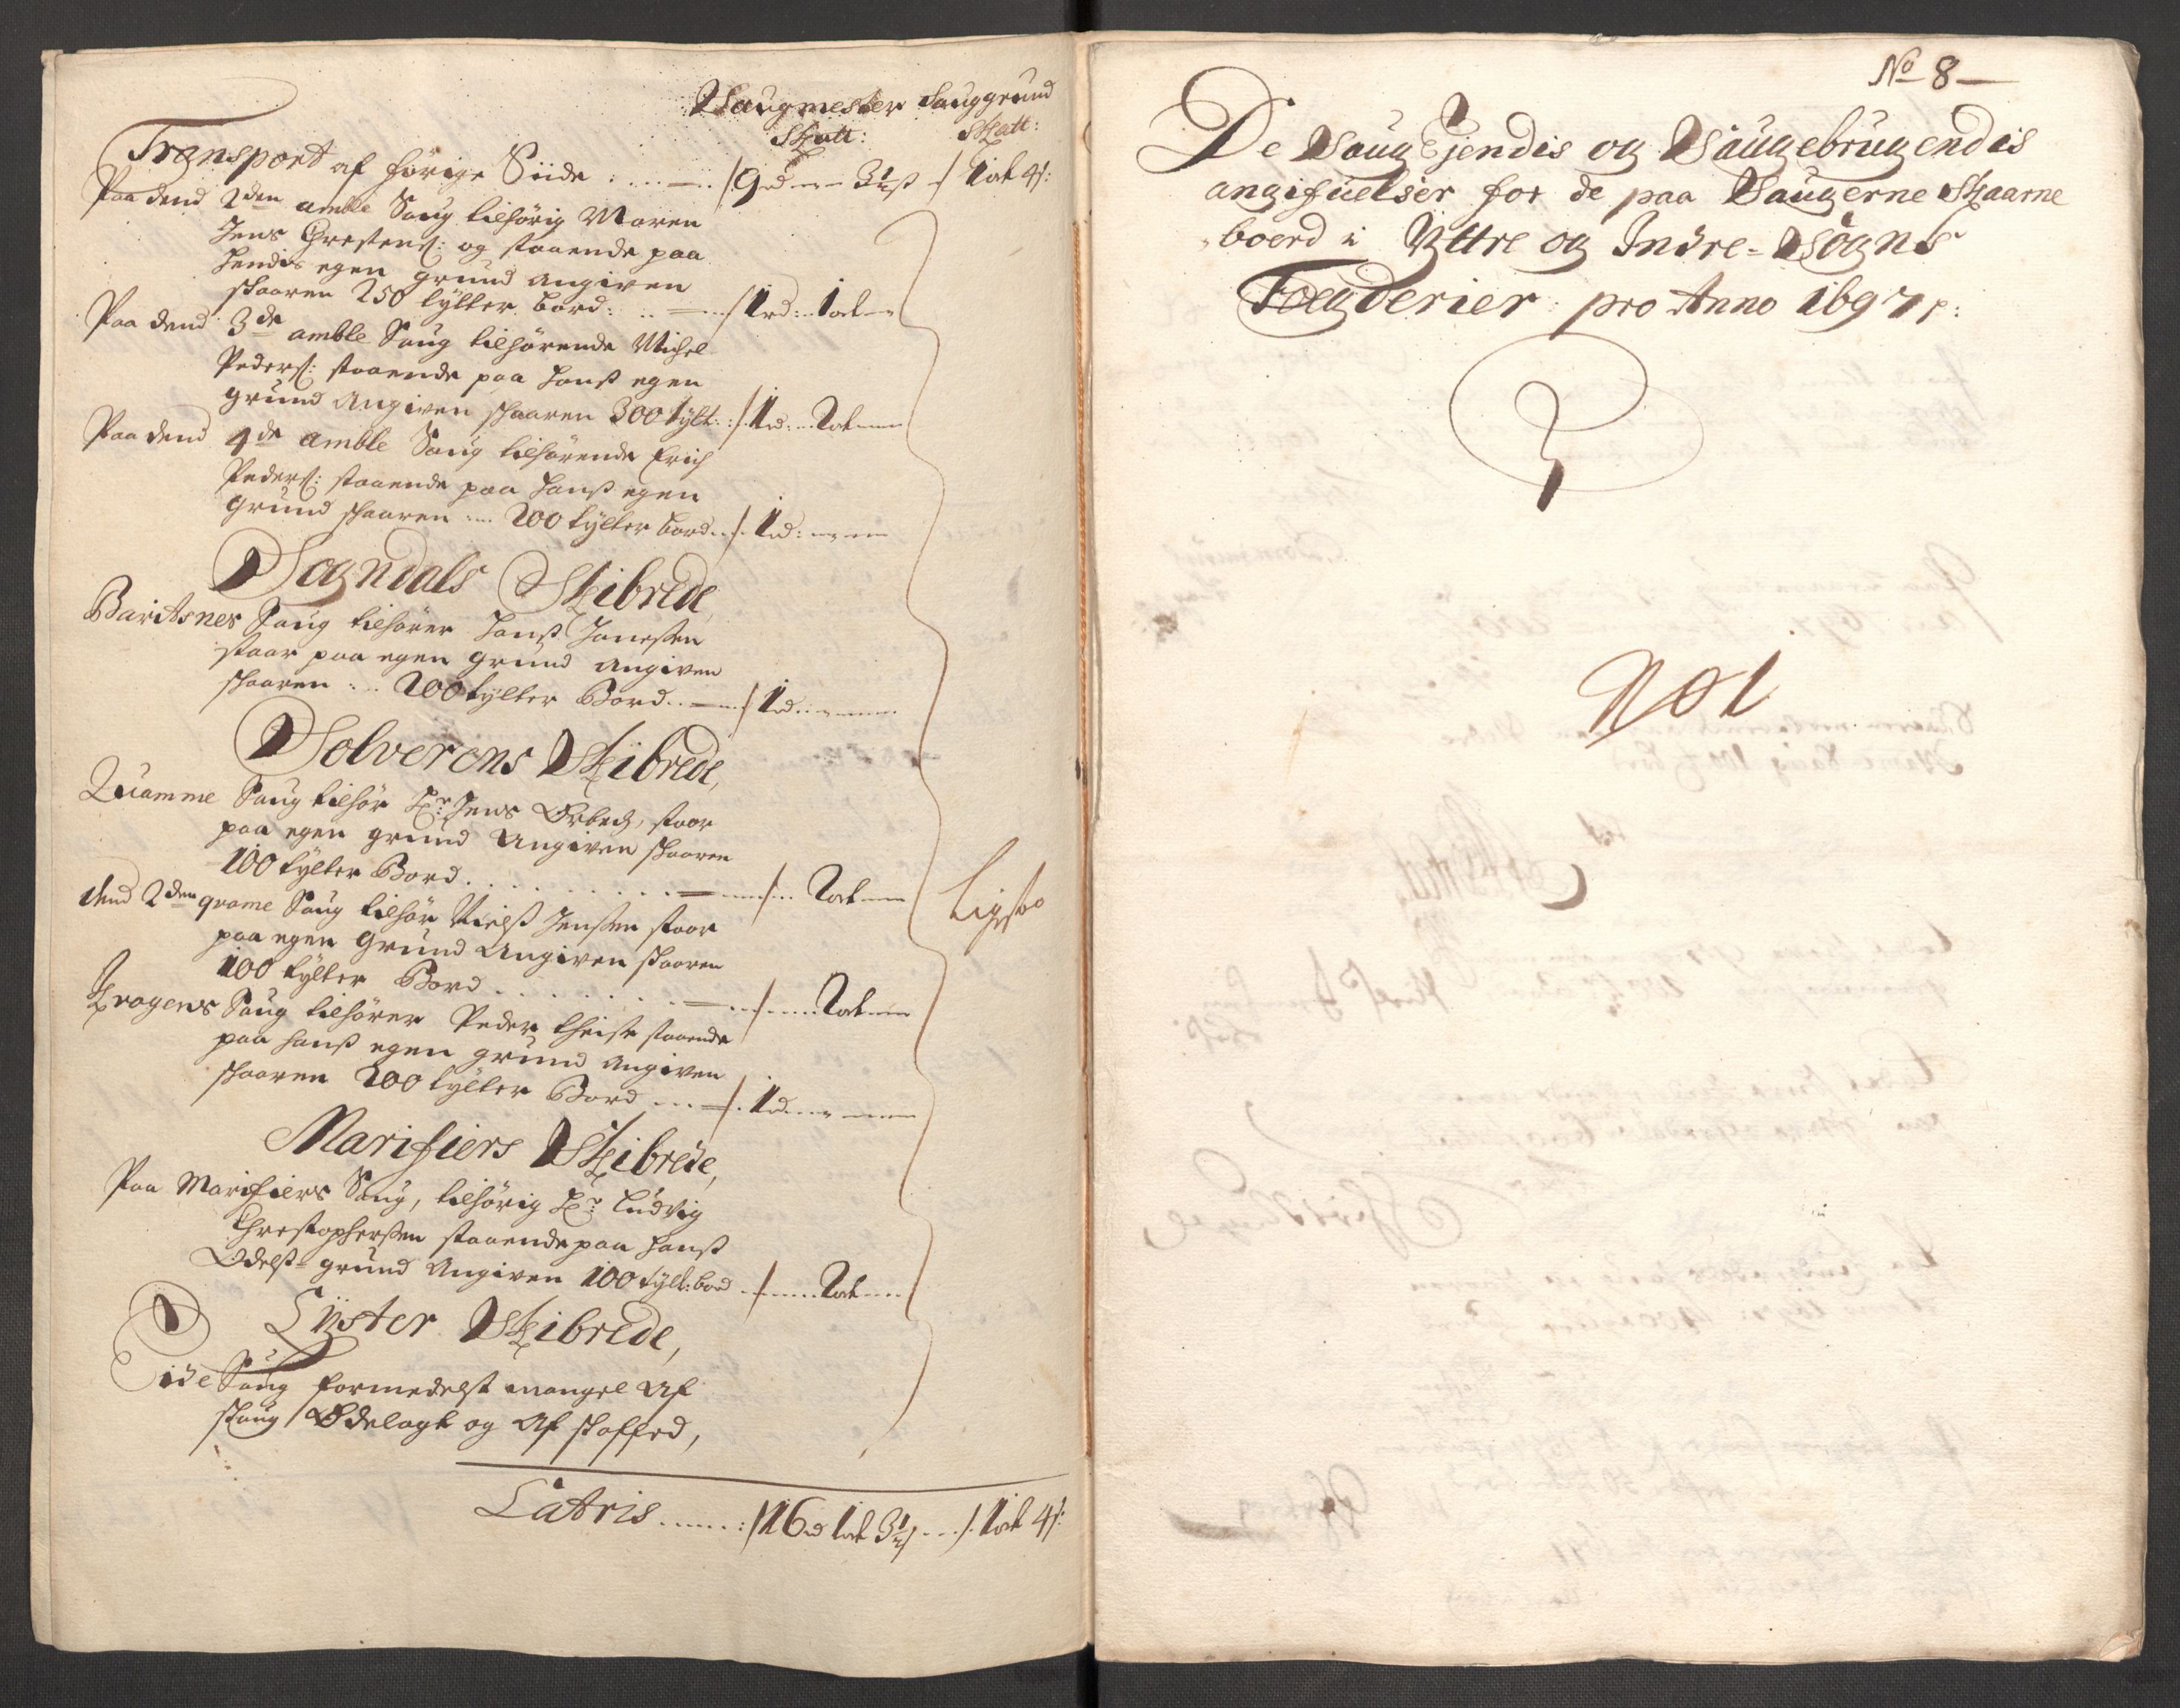 Saugmester Sauggrund
Skatt: Skatt:
Transport af forige Siide : 9 rd - 3½ ß 1 ort 4 ß:
Paa dend 2den amble Saug tilhørig Maren
Jens Chrestens: og staaende paa
hendis egen grund angiven
skaaren 250 tylter bord: 1 rd: 1 ort
Paa dend 3de amble Saug tilhørende Michel
Peders: staaende paa hans egen
grund angiven skaaren 300 tylt: 1 rd: 2 ort
Paa dend 4de amble Saug tilhørende Erich
Peders: staaende paa hans egen
grund skaaren 200 tylter bord 1 rd:
Sogndals Skibrede
Baritsnes Saug tilhører Hans Janessen
staar paa egen grund angiven
skaaren 200 tylter Bord 1 rd
Solverens Skibrede,
Quamme Saug tilhør Hr: Jens Ørbech, staar
paa egen grund angiven skaaren
100 tylter Bord 2 ort
dend 2den qvame Saug tilhør Niels Jensen staar
paa egen grund angiven skaaren
100 tylter Bord 2 ort
Krogens Saug tilhører Peder Theiste staaende
paa hans egen grund angiven
skaaren 200 tylter Bord 1 rd
Marifiers Skibrede,
Paa Marifiers Saug, tilhørig Hr: Ludvig
Christophersen staaende paa hans
Odels grund angiven 100 tylt: bord 2 ort
Lyster Skibrede,
Eide Saug formedelst mangel af
skaug Ødelagt og af skaffed,
Ligesaa
Latris 16 rd 1 ort 3½ ß 1 ort 4 ß:
No 8
De Saug Ejendis og Saugebrugendis
angifuelser for de paa Saugerne Skaarne
boerd i Yttre og Indre-Sogns
Fogderier pro Anno 1697